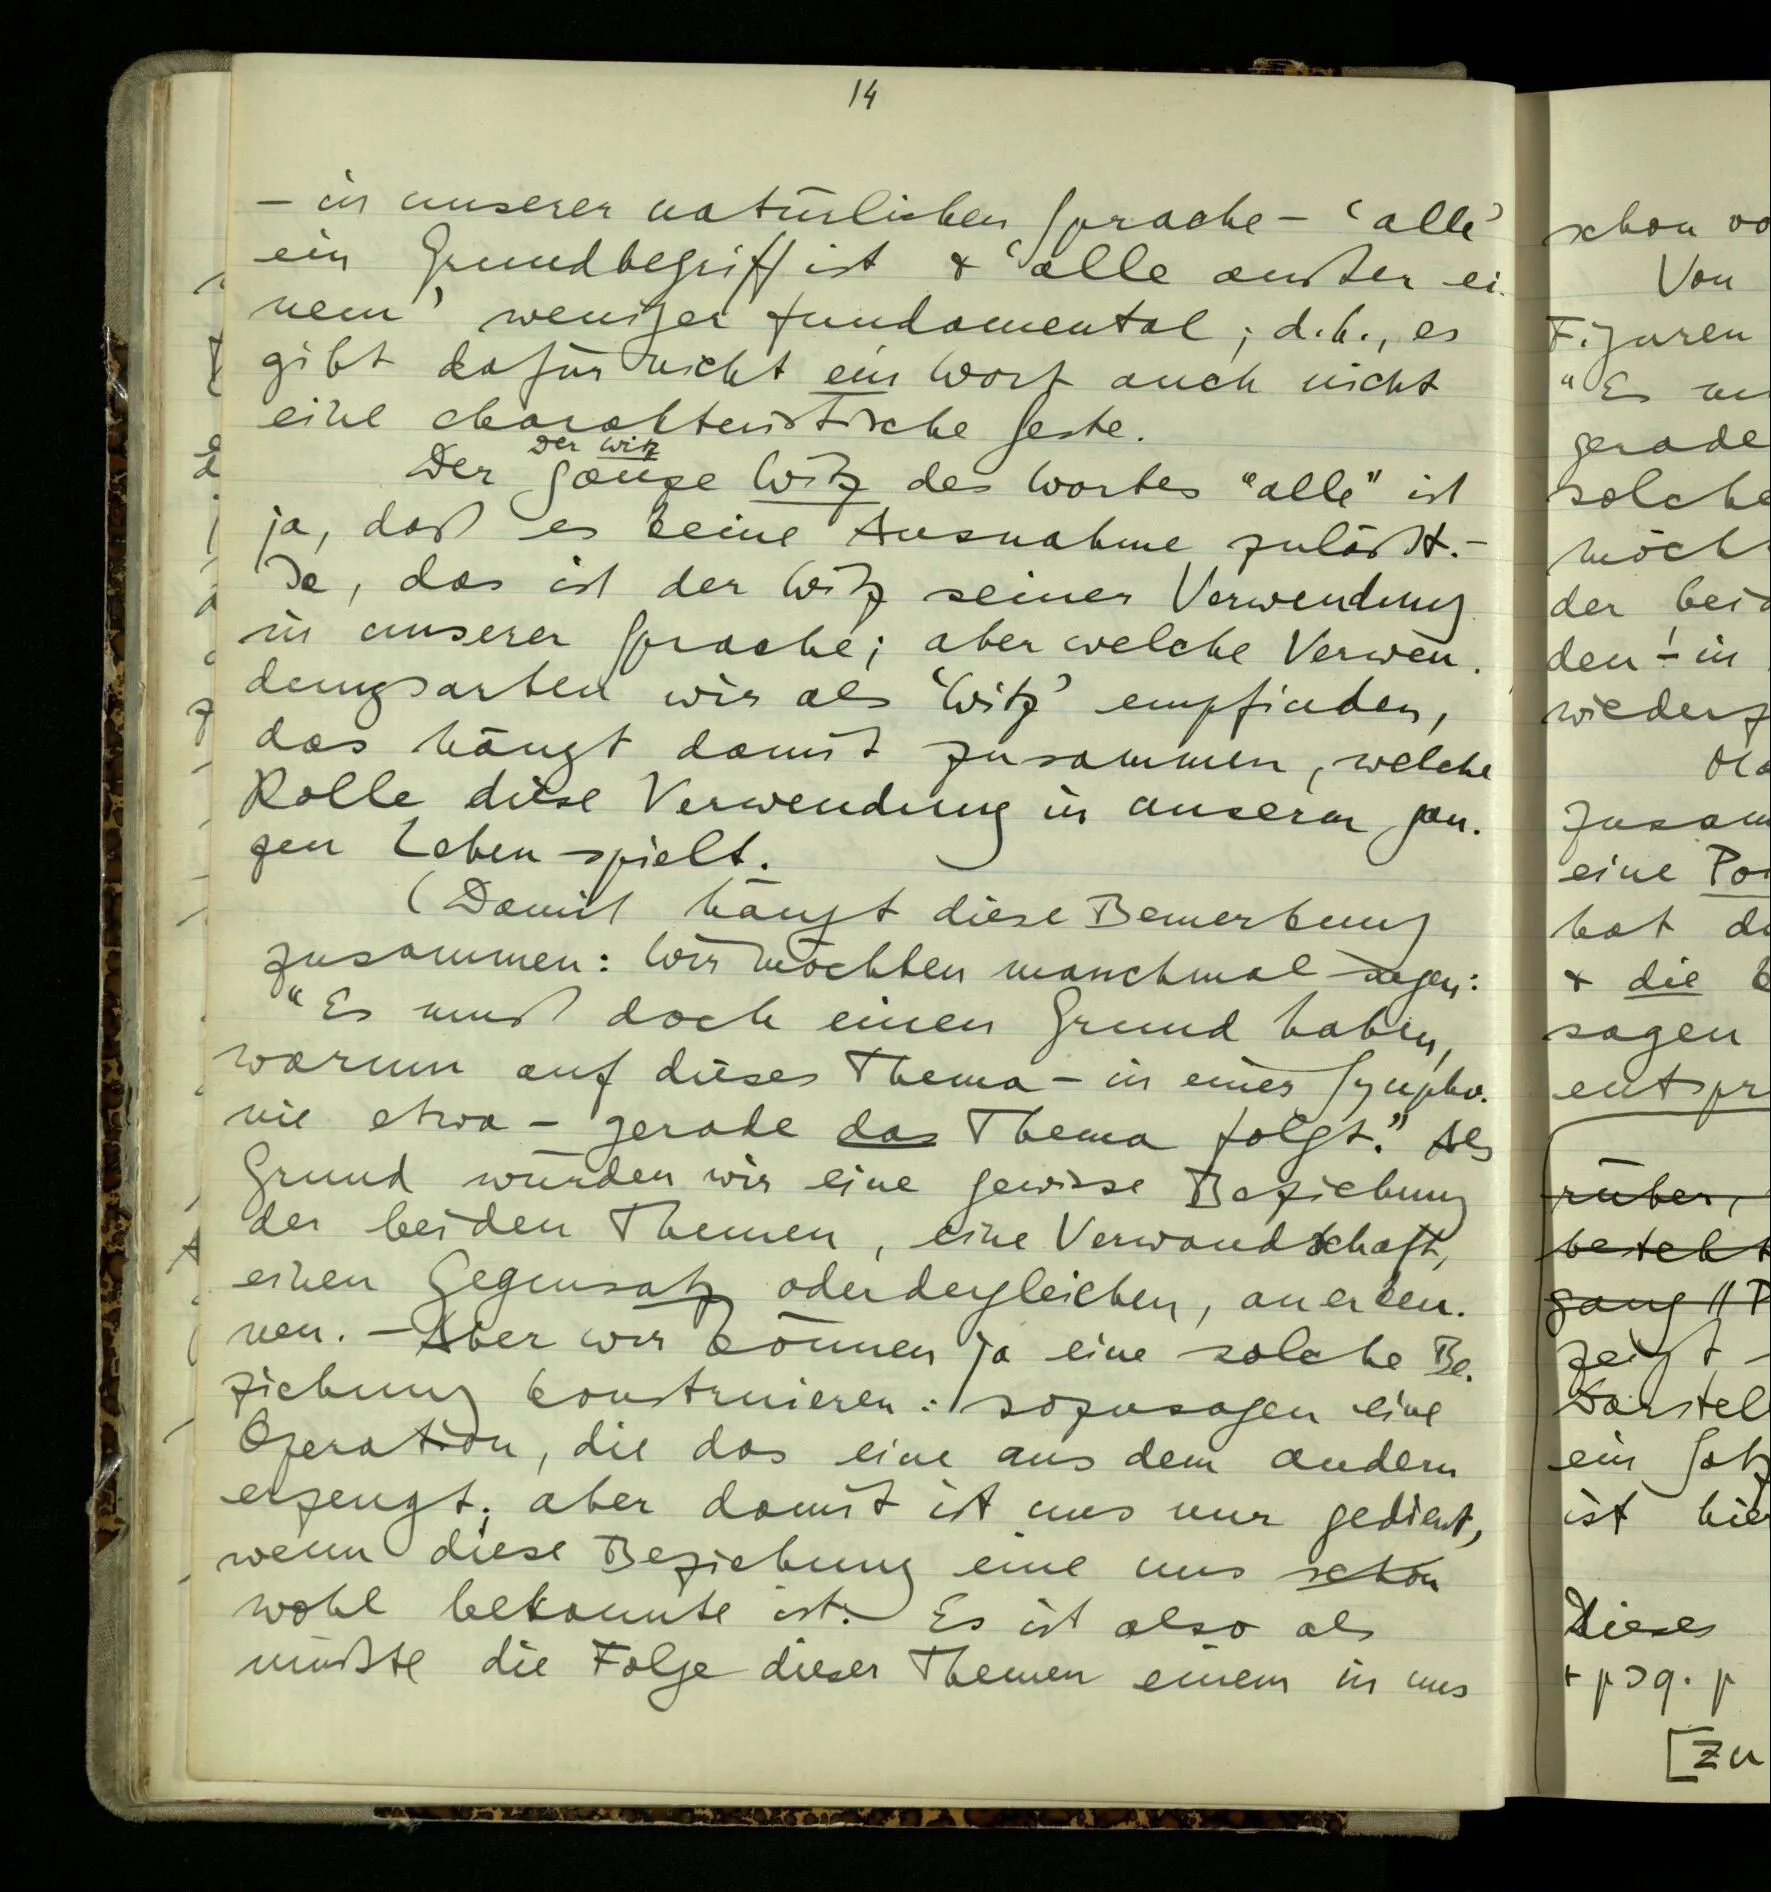 14
– in unserer natürlichen Sprache – ‘alle’
ein Grundbegriff ist & ‘alle außer ei-
nem’ weniger fundamental; d.h., es
gibt dafür nicht ein Wort auch nicht
eine charakteristische Geste.
Der Witz
Der ganze Witz des Wortes “alle” ist
ja, daß es keine Ausnahme zuläßt. –
Ja, das ist der Witz seiner Verwendung
in unserer Sprache; aber welche Verwen-
dungsarten wir als ‘Witz’ empfinden,
das hängt damit zusammen, welche
Rolle diese Verwendung in unserm gan-
zen Leben spielt.
(Damit hängt diese Bemerkung
zusammen: Wir möchten manchmal sagen:
“Es muß doch einen Grund haben,
warum auf dieses Thema – in einer Sympho-
nie etwa – gerade das Thema folgt.” Als
Grund würden wir eine gewisse Beziehung
der beiden Themen, eine Verwandschaft,
einen Gegensatz oder dergleichen, anerken-
nen. – Aber wir können ja eine solche Be-
ziehung konstruieren: sozusagen eine
Operation, die das eine aus dem andern
erzeugt; aber damit ist uns nur gedient,
wenn diese Beziehung eine uns schon
wohl bekannte ist. Es ist also als
müßte die Folge dieser Themen einem in uns
schon
Von
Figuren
“Es
gerade
solche
möcht
der beid
den – in
wieder
zusam
eine
hat
& die
sagen
entspr
rüber,
besteht
gang
zeigt
Darstel
ein Satz
ist hier
Dieses
p ⊃ q . p
[Zu